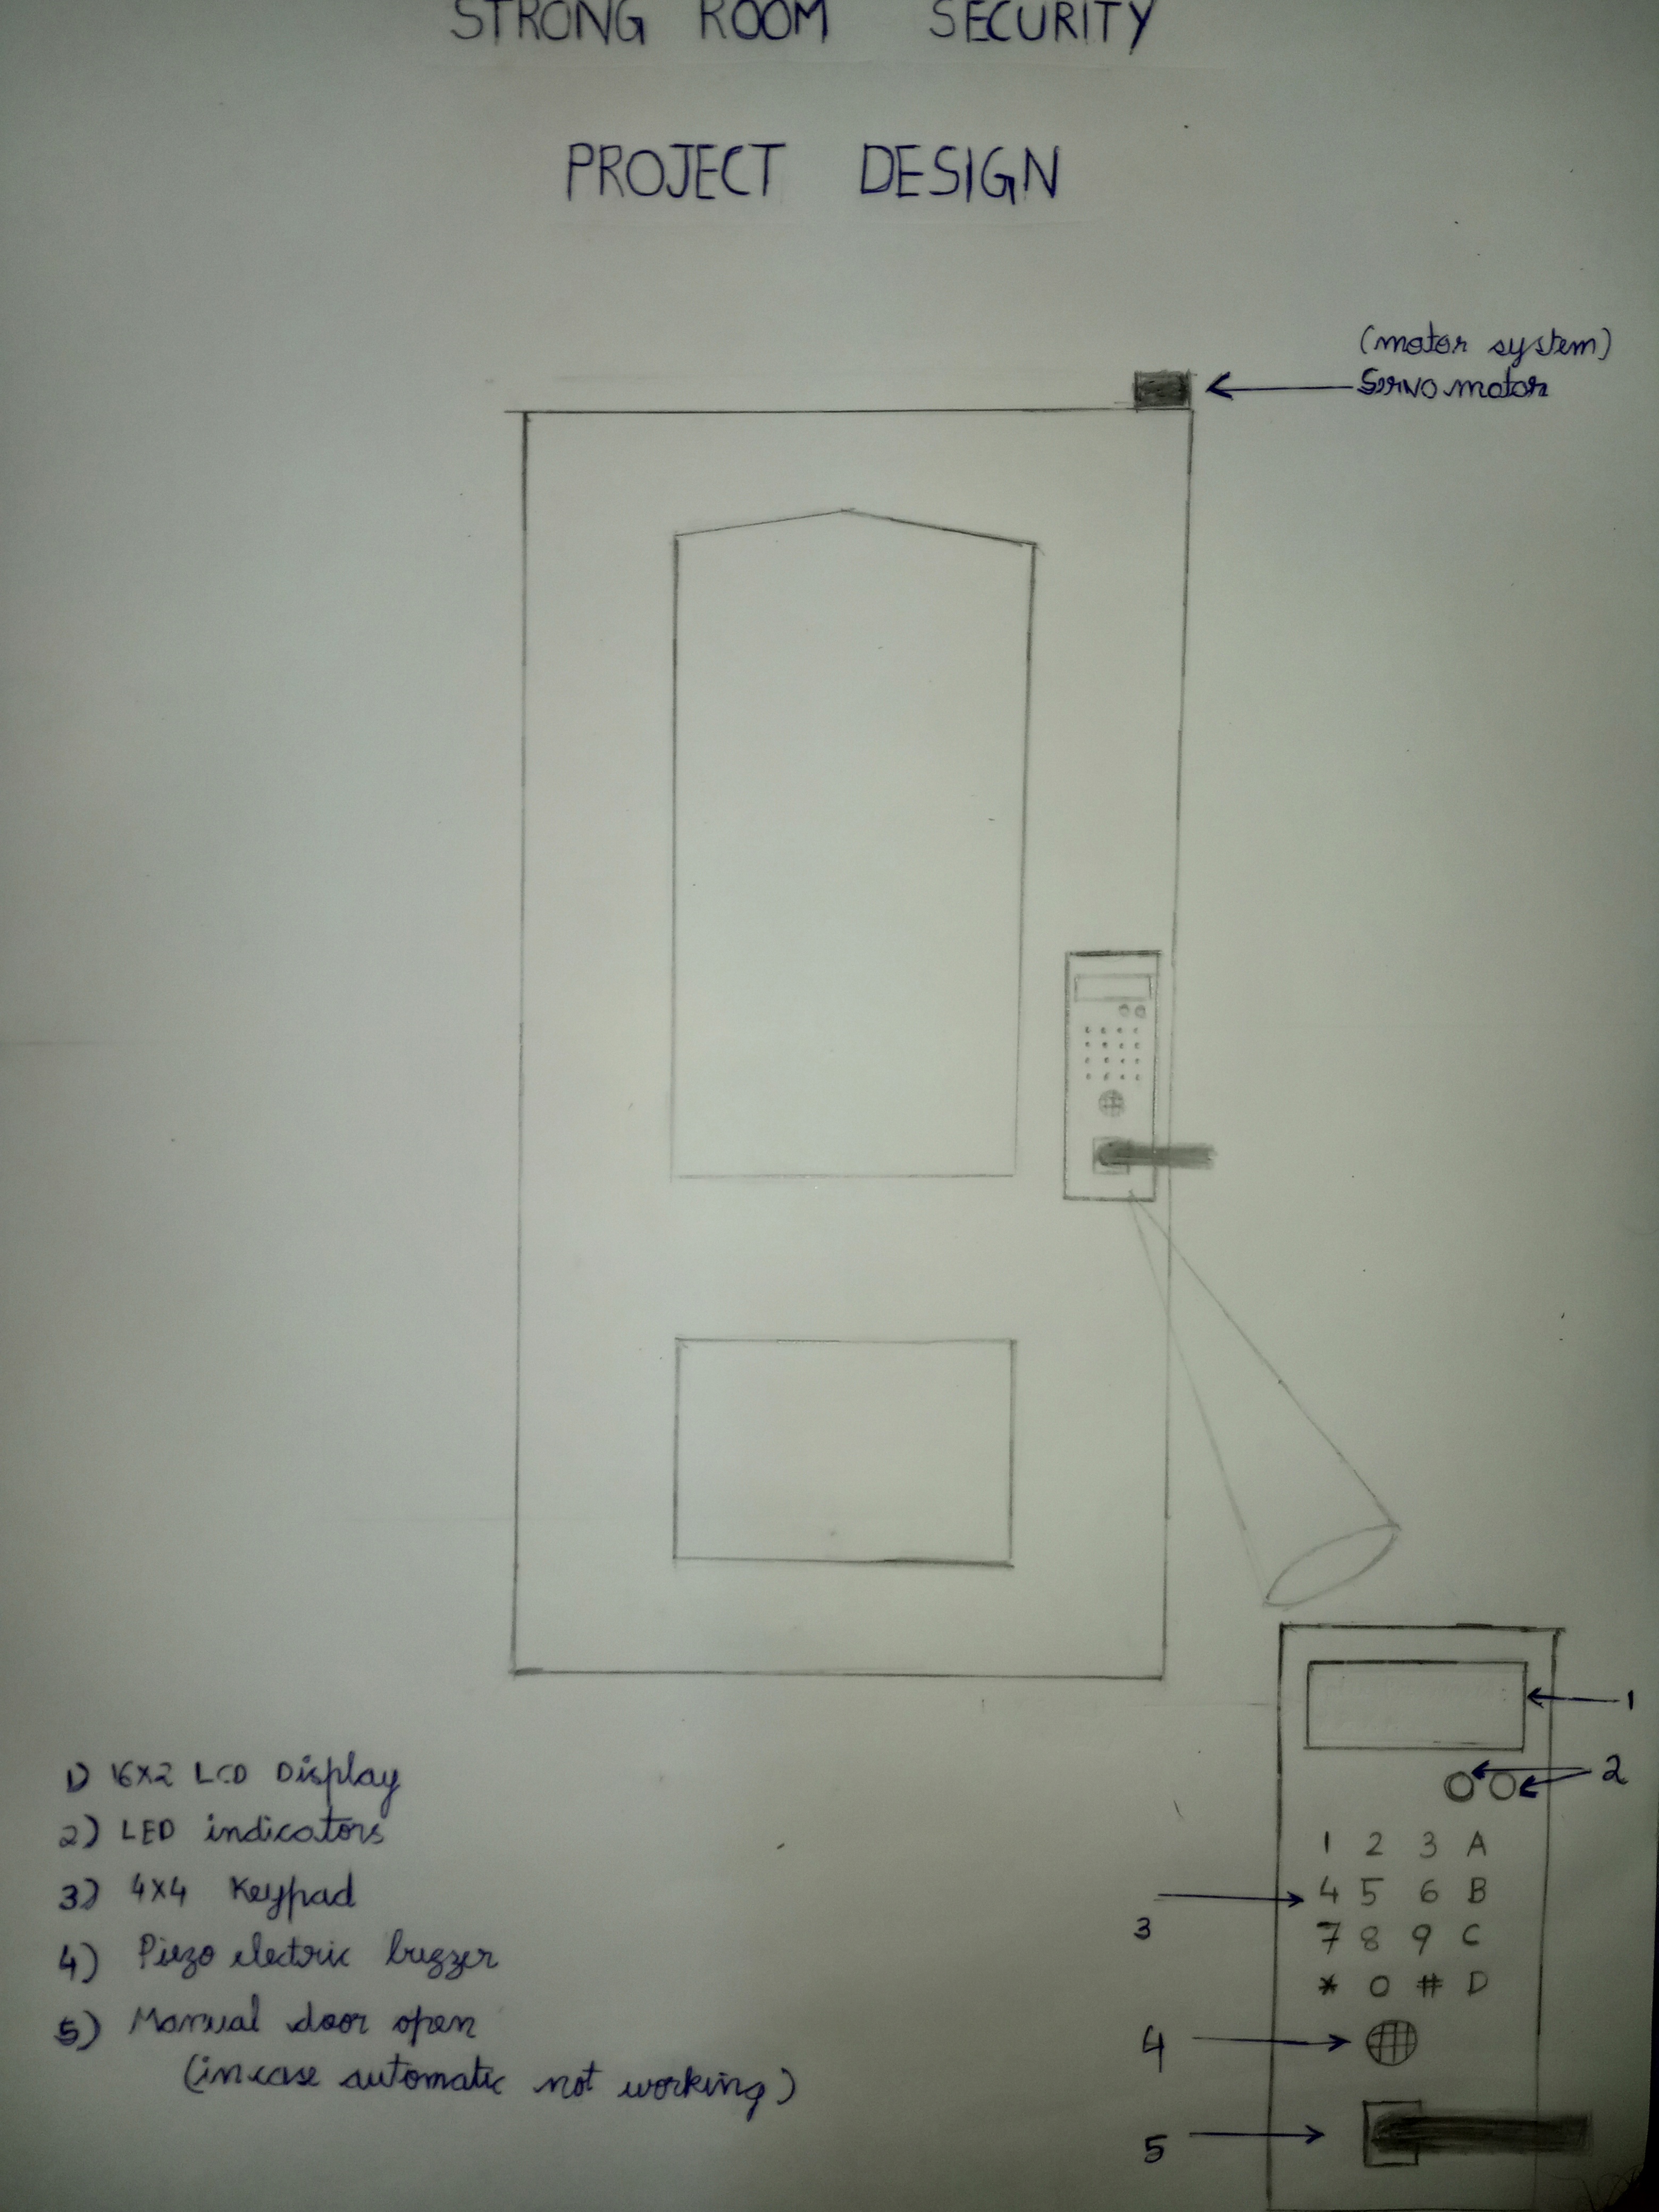 STRONG ROOM SECURITY
PROJECT DESIGN
(motor system)
Servo motor
1
2
1 2 3 A
4 5 6 B
3
7 8 9 C
* 0 # D
4
5
1) 16X2 LCD Display
2) LED indicators
3) 4X4 Keypad
4) Piezo electric buzzer
5) Manual door open
(incase automatic not working)